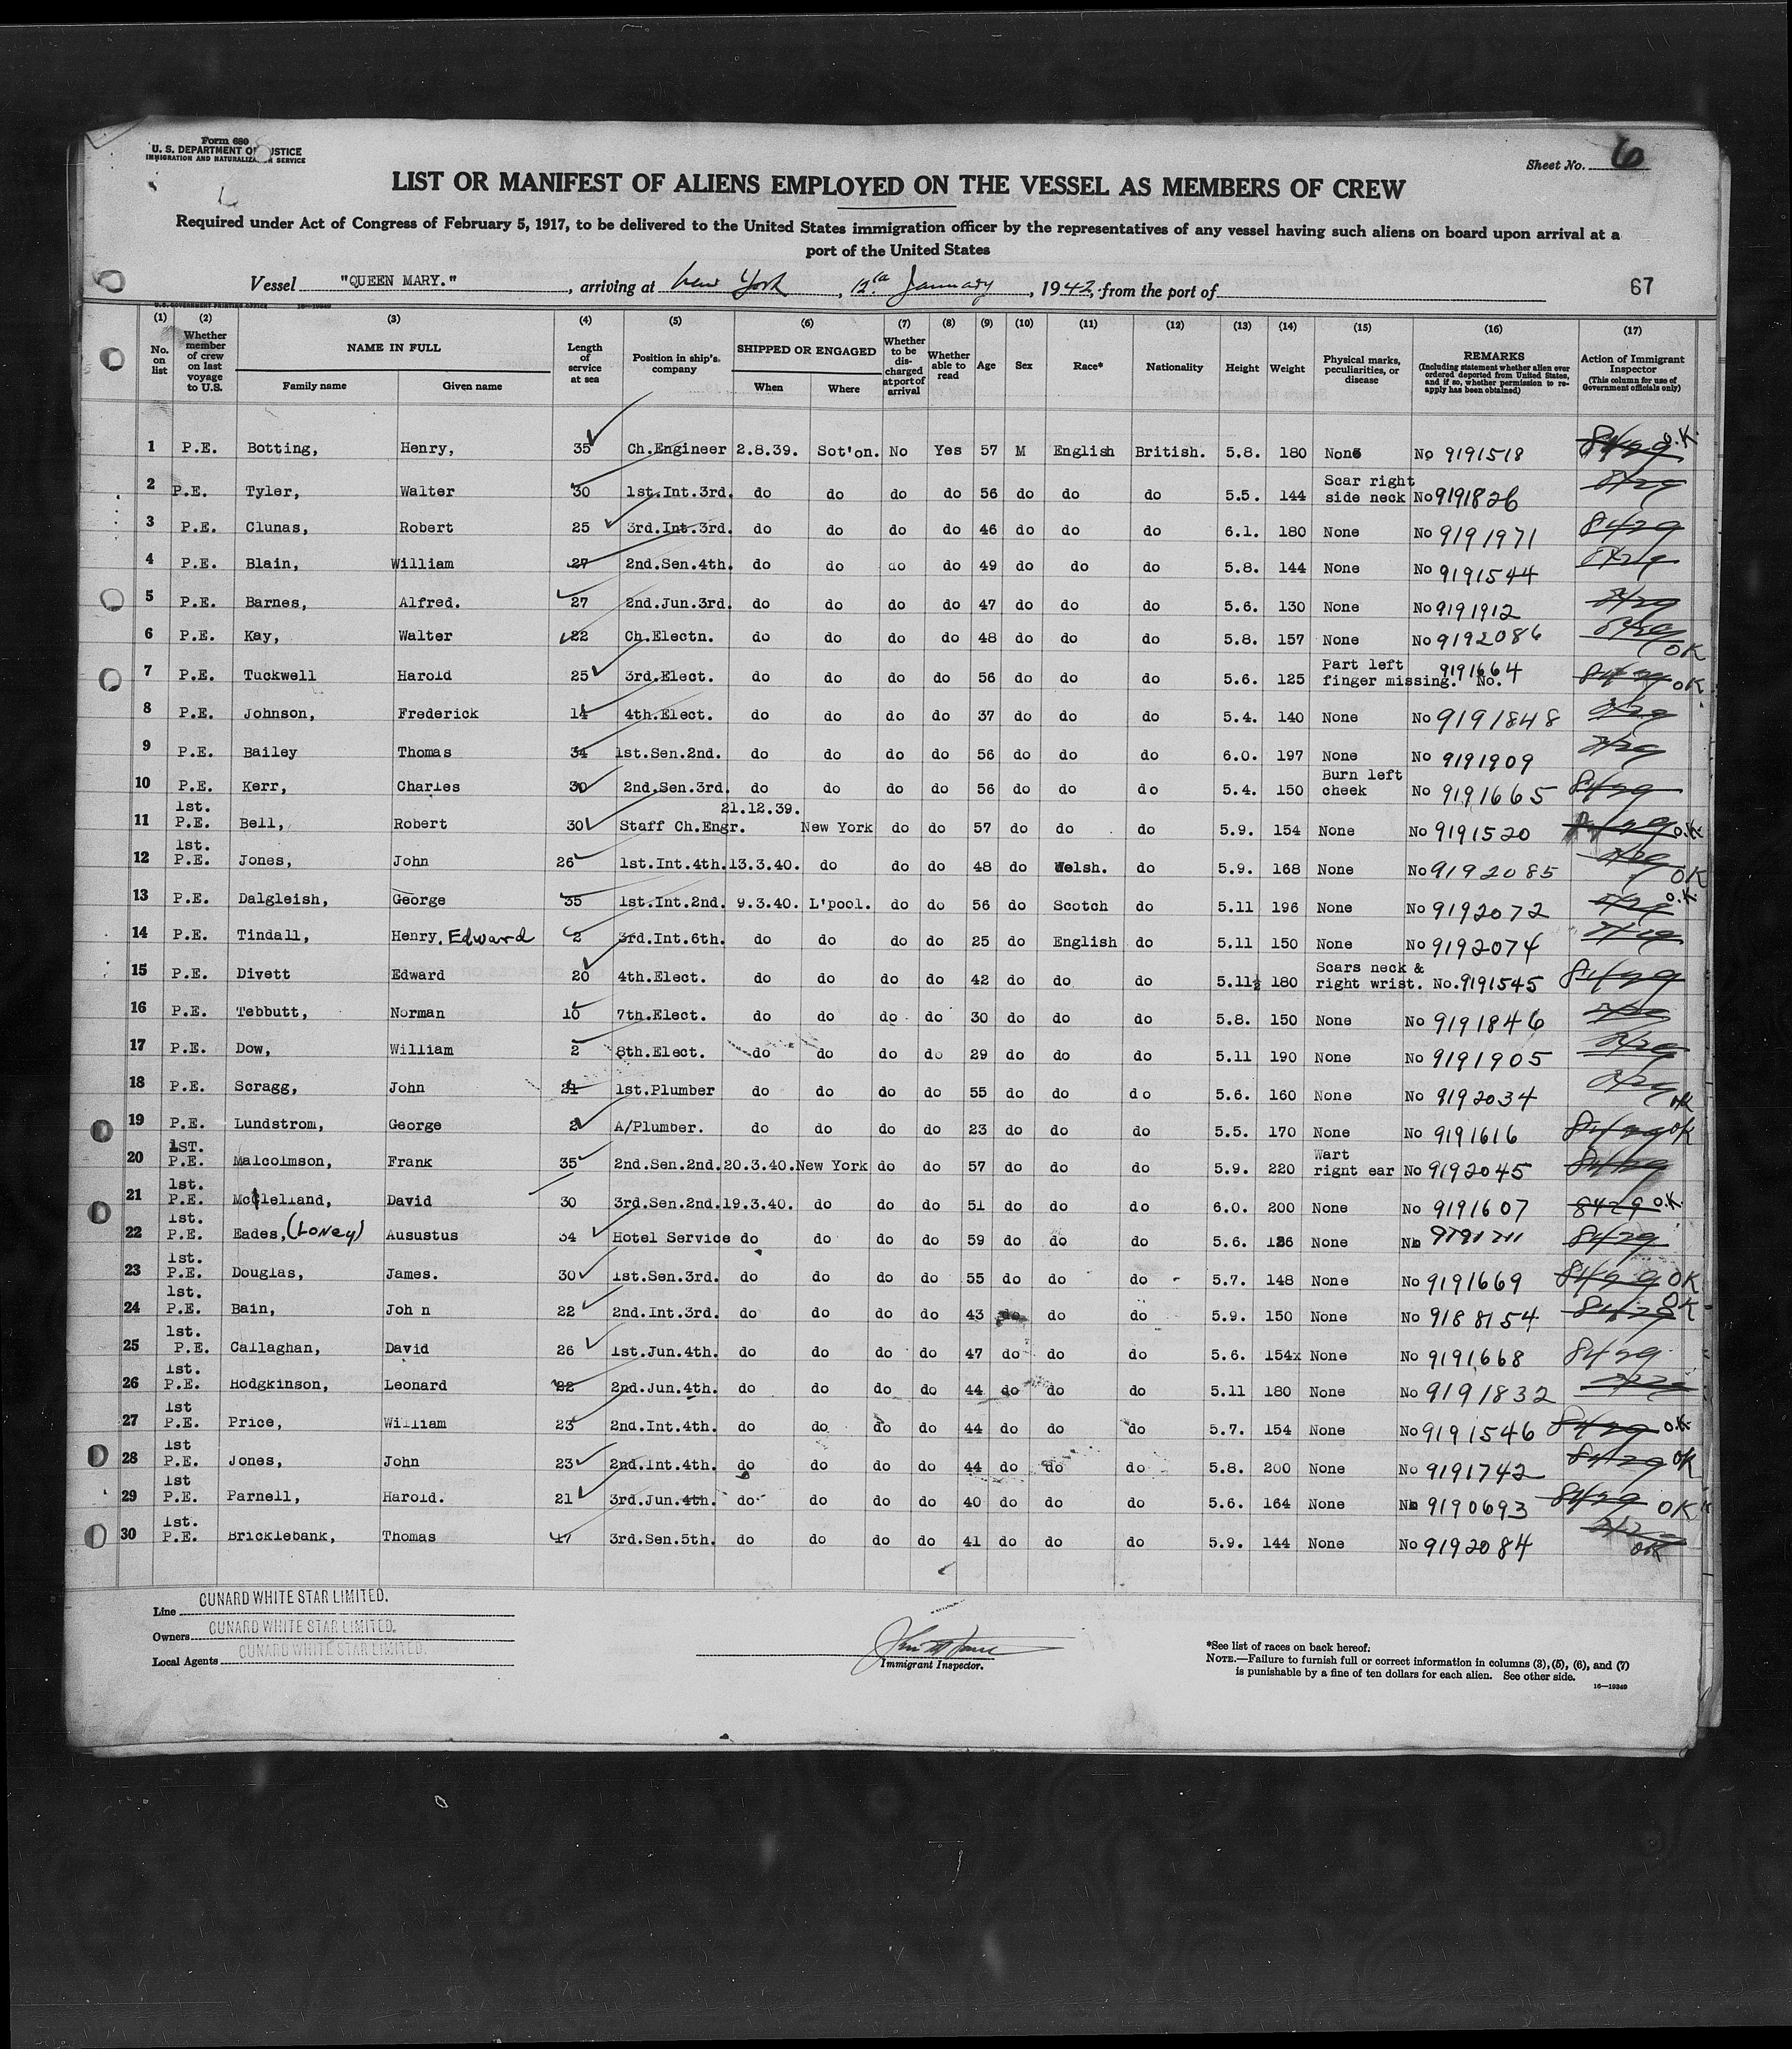 Form 680
U. S. DEPARTMENT OF JUSTICE
IMMIGRATION AND NATURALIZATION SERVICE
Sheet No. 6
LIST OR MANIFEST OF ALIENS EMPLOYED ON THE VESSEL AS MEMBERS OF CREW
Required under Act of Congress of February 5, 1917, to be delivered to the United States immigration officer by the representatives of any vessel having such aliens on board upon arrival at a
port of the United States
Vessel "QUEEN MARY.", arriving at New York, 12th January, 1942, from the port of
67
U.S. GOVERNMENT PRINTING OFFICE
(1) No. on list (2) Whether member of crew on last voyage to U.S. (3) NAME IN FULL Family name Given name (4) Length of service at sea (5) Position in ship's company (6) SHIPPED OR ENGAGED When Where (7) Whether to be discharged at port of arrival (8) Whether able to read (9) Age (10) Sex (11) Race* (12) Nationality (13) Height (14) Weight (15) Physical marks, peculiarities, or disease (16) REMARKS (Including statement whether alien ever ordered deported from United States, and if so, whether permission to reapply has been obtained) (17) Action of Immigrant Inspector (This column for use of Government officials only)
1 P.E. Botting, Henry, 35 Ch.Engineer 2.8.39. Sot'on. No Yes 57 M English British. 5.8. 180 None No 9191518 8429 O.K.
2 P.E. Tyler, Walter 30 1st.Int.3rd. do do do do 56 do do do 5.5. 144 Scar right side neck No 9191826 8429
3 P.E. Clunas, Robert 25 3rd.Int.3rd. do do do do 46 do do do 6.1. 180 None No 9191971 8429
4 P.E. Blain, William 27 2nd.Sen.4th. do do do do 49 do do do 5.8. 144 None No 9191544 8429
5 P.E. Barnes, Alfred. 27 2nd.Jun.3rd. do do do do 47 do do do 5.6. 130 None No 9191912 8429
6 P.E. Kay, Walter 22 Ch.Electn. do do do do 48 do do do 5.8. 157 None No 9192086 8429 OK
7 P.E. Tuckwell Harold 25 3rd.Elect. do do do do 56 do do do 5.6. 125 Part left finger missing. No. 9191664 8429 OK
8 P.E. Johnson, Frederick 14 4th.Elect. do do do do 37 do do do 5.4. 140 None No 9191848 8429
9 P.E. Bailey Thomas 34 1st.Sen.2nd. do do do do 56 do do do 6.0. 197 None No 9191909 8429
10 P.E. Kerr, Charles 30 2nd.Sen.3rd. do do do do 56 do do do 5.4. 150 Burn left cheek No 9191665 8429
11 1st. P.E. Bell, Robert 30 Staff Ch.Engr. 21.12.39. New York do do 57 do do do 5.9. 154 None No 9191520 8429 O.K.
12 1st. P.E. Jones, John 26 1st.Int.4th. 13.3.40. do do do 48 do Welsh. do 5.9. 168 None No 9192085 8429 OK
13 P.E. Dalgleish, George 35 1st.Int.2nd. 9.3.40. L'pool. do do 56 do Scotch do 5.11 196 None No 9192072 8429 O.K.
14 P.E. Tindall, Henry. Edward 2 3rd.Int.6th. do do do do 25 do English do 5.11 150 None No 9192074 8429
15 P.E. Divett Edward 20 4th.Elect. do do do do 42 do do do 5.11½ 180 Scars neck & right wrist. No. 9191545 8429
16 P.E. Tebbutt, Norman 10 7th.Elect. do do do do 30 do do do 5.8. 150 None No 9191846 8429
17 P.E. Dow, William 2 8th.Elect. do do do do 29 do do do 5.11 190 None No 9191905 8429
18 P.E. Scragg, John 21 1st.Plumber do do do do 55 do do do 5.6. 160 None No 9192034 8429 OK
19 P.E. Lundstrom, George 2 A/Plumber. do do do do 23 do do do 5.5. 170 None No 9191616 8429 OK
20 1ST. P.E. Malcolmson, Frank 35 2nd.Sen.2nd. 20.3.40. New York do do 57 do do do 5.9. 220 Wart right ear No 9192045 8429
21 1st. P.E. McClelland, David 30 3rd.Sen.2nd. 19.3.40. do do do 51 do do do 6.0. 200 None No 9191607 8429 O.K.
22 1st. P.E. Eades, (Loney) Augustus 34 Hotel Service do do do do 59 do do do 5.6. 186 None No 9191711 8429
23 1st. P.E. Douglas, James. 30 1st.Sen.3rd. do do do do 55 do do do 5.7. 148 None No 9191669 8429 OK
24 1st. P.E. Bain, Joh n 22 2nd.Int.3rd. do do do do 43 do do do 5.9. 150 None No 9188154 8429 OK
25 1st. P.E. Callaghan, David 26 1st.Jun.4th. do do do do 47 do do do 5.6. 154x None No 9191668 8429
26 1st. P.E. Hodgkinson, Leonard 22 2nd.Jun.4th. do do do do 44 do do do 5.11 180 None No 9191832
27 1st P.E. Price, William 23 2nd.Int.4th. do do do do 44 do do do 5.7. 154 None No 9191546 8429 O.K.
28 1st P.E. Jones, John 23 2nd.Int.4th. do do do do 44 do do do 5.8. 200 None No 9191742 8429 OK
29 1st P.E. Parnell, Harold. 21 3rd.Jun.4th. do do do do 40 do do do 5.6. 164 None No 9190693 8429 OK
30 1st. P.E. Bricklebank, Thomas 17 3rd.Sen.5th. do do do do 41 do do do 5.9. 144 None No 9192084 OK
Line CUNARD WHITE STAR LIMITED.
Owners CUNARD WHITE STAR LIMITED.
Local Agents CUNARD WHITE STAR LIMITED.
Immigrant Inspector.
*See list of races on back hereof.
NOTE.—Failure to furnish full or correct information in columns (3), (5), (6), and (7)
is punishable by a fine of ten dollars for each alien. See other side.
16—19349